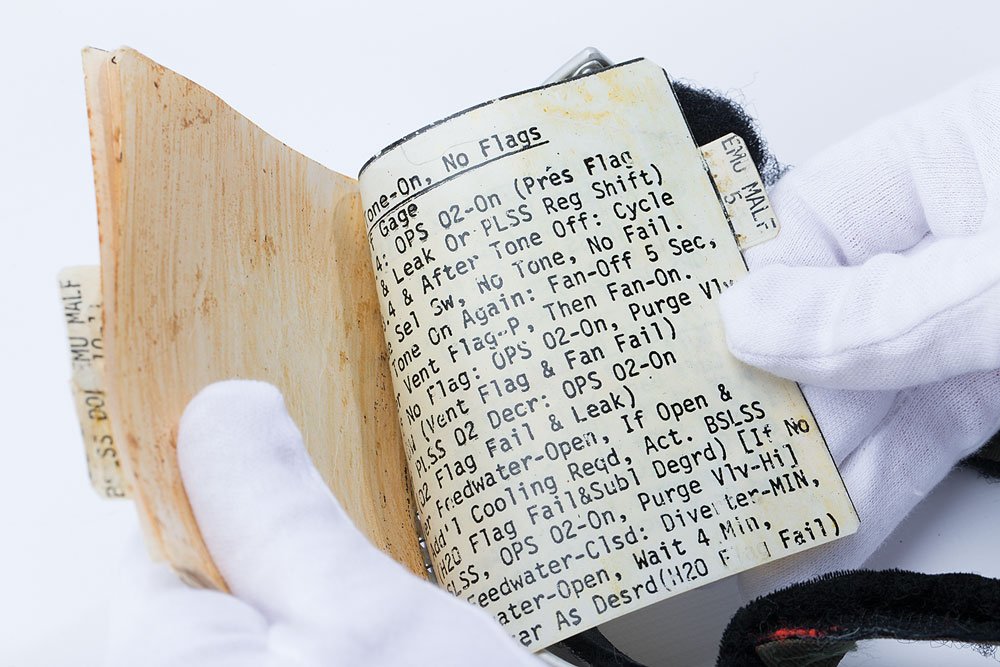 one-On, No Flags
Gage
4: OPS O2-On (Pres Flag
& Leak Or PLSS Reg Shift)
.4 & After Tone Off: Cycle
Sel Sw, No Tone, No Fail.
Tone On Again: Fan-Off 5 Sec,
Vent Flag-P, Then Fan-On.
No Flag: OPS O2-On, Purge Vlv
(Vent Flag & Fan Fail)
PLSS O2 Decr: OPS O2-On
O2 Flag Fail & Leak)
or Feedwater-Open, If Open &
dd'l Cooling Reqd, Act. BSLSS
H2O Flag Fail&Subl Degrd) [If No
SLSS, OPS O2-On, Purge Vlv-Hi]
Feedwater-Clsd: Diverter-MIN,
ater-Open, Wait 4 Min,
er As Desrd(H2O Flag Fail)
EMU MALF
5
EMU MALF
10